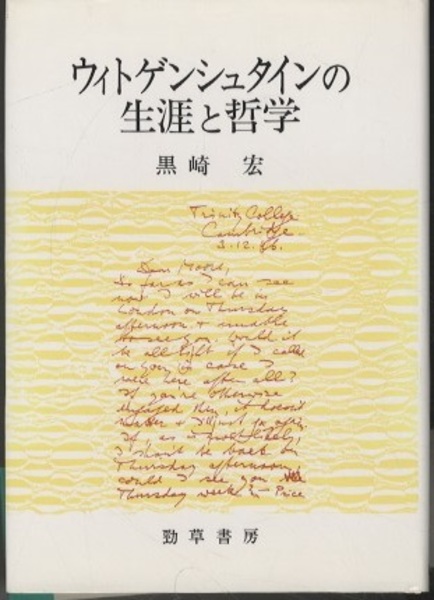 ウィトゲンシュタインの
生涯と哲学
黒崎 宏
Trinity College
Cambridge.
3.12.36.
Dear Moore,
So far as I can see
now I will be in
London on Thursday
afternoon & unable
to see you. Would it
be all right if I called
on you in case I
were here after all?
If you're otherwise
engaged then, it doesn't
matter & I'll just go again.
If, as is most likely,
I shan't be back on
Thursday afternoon,
could I see you
Thursday week? – Price
勁草書房